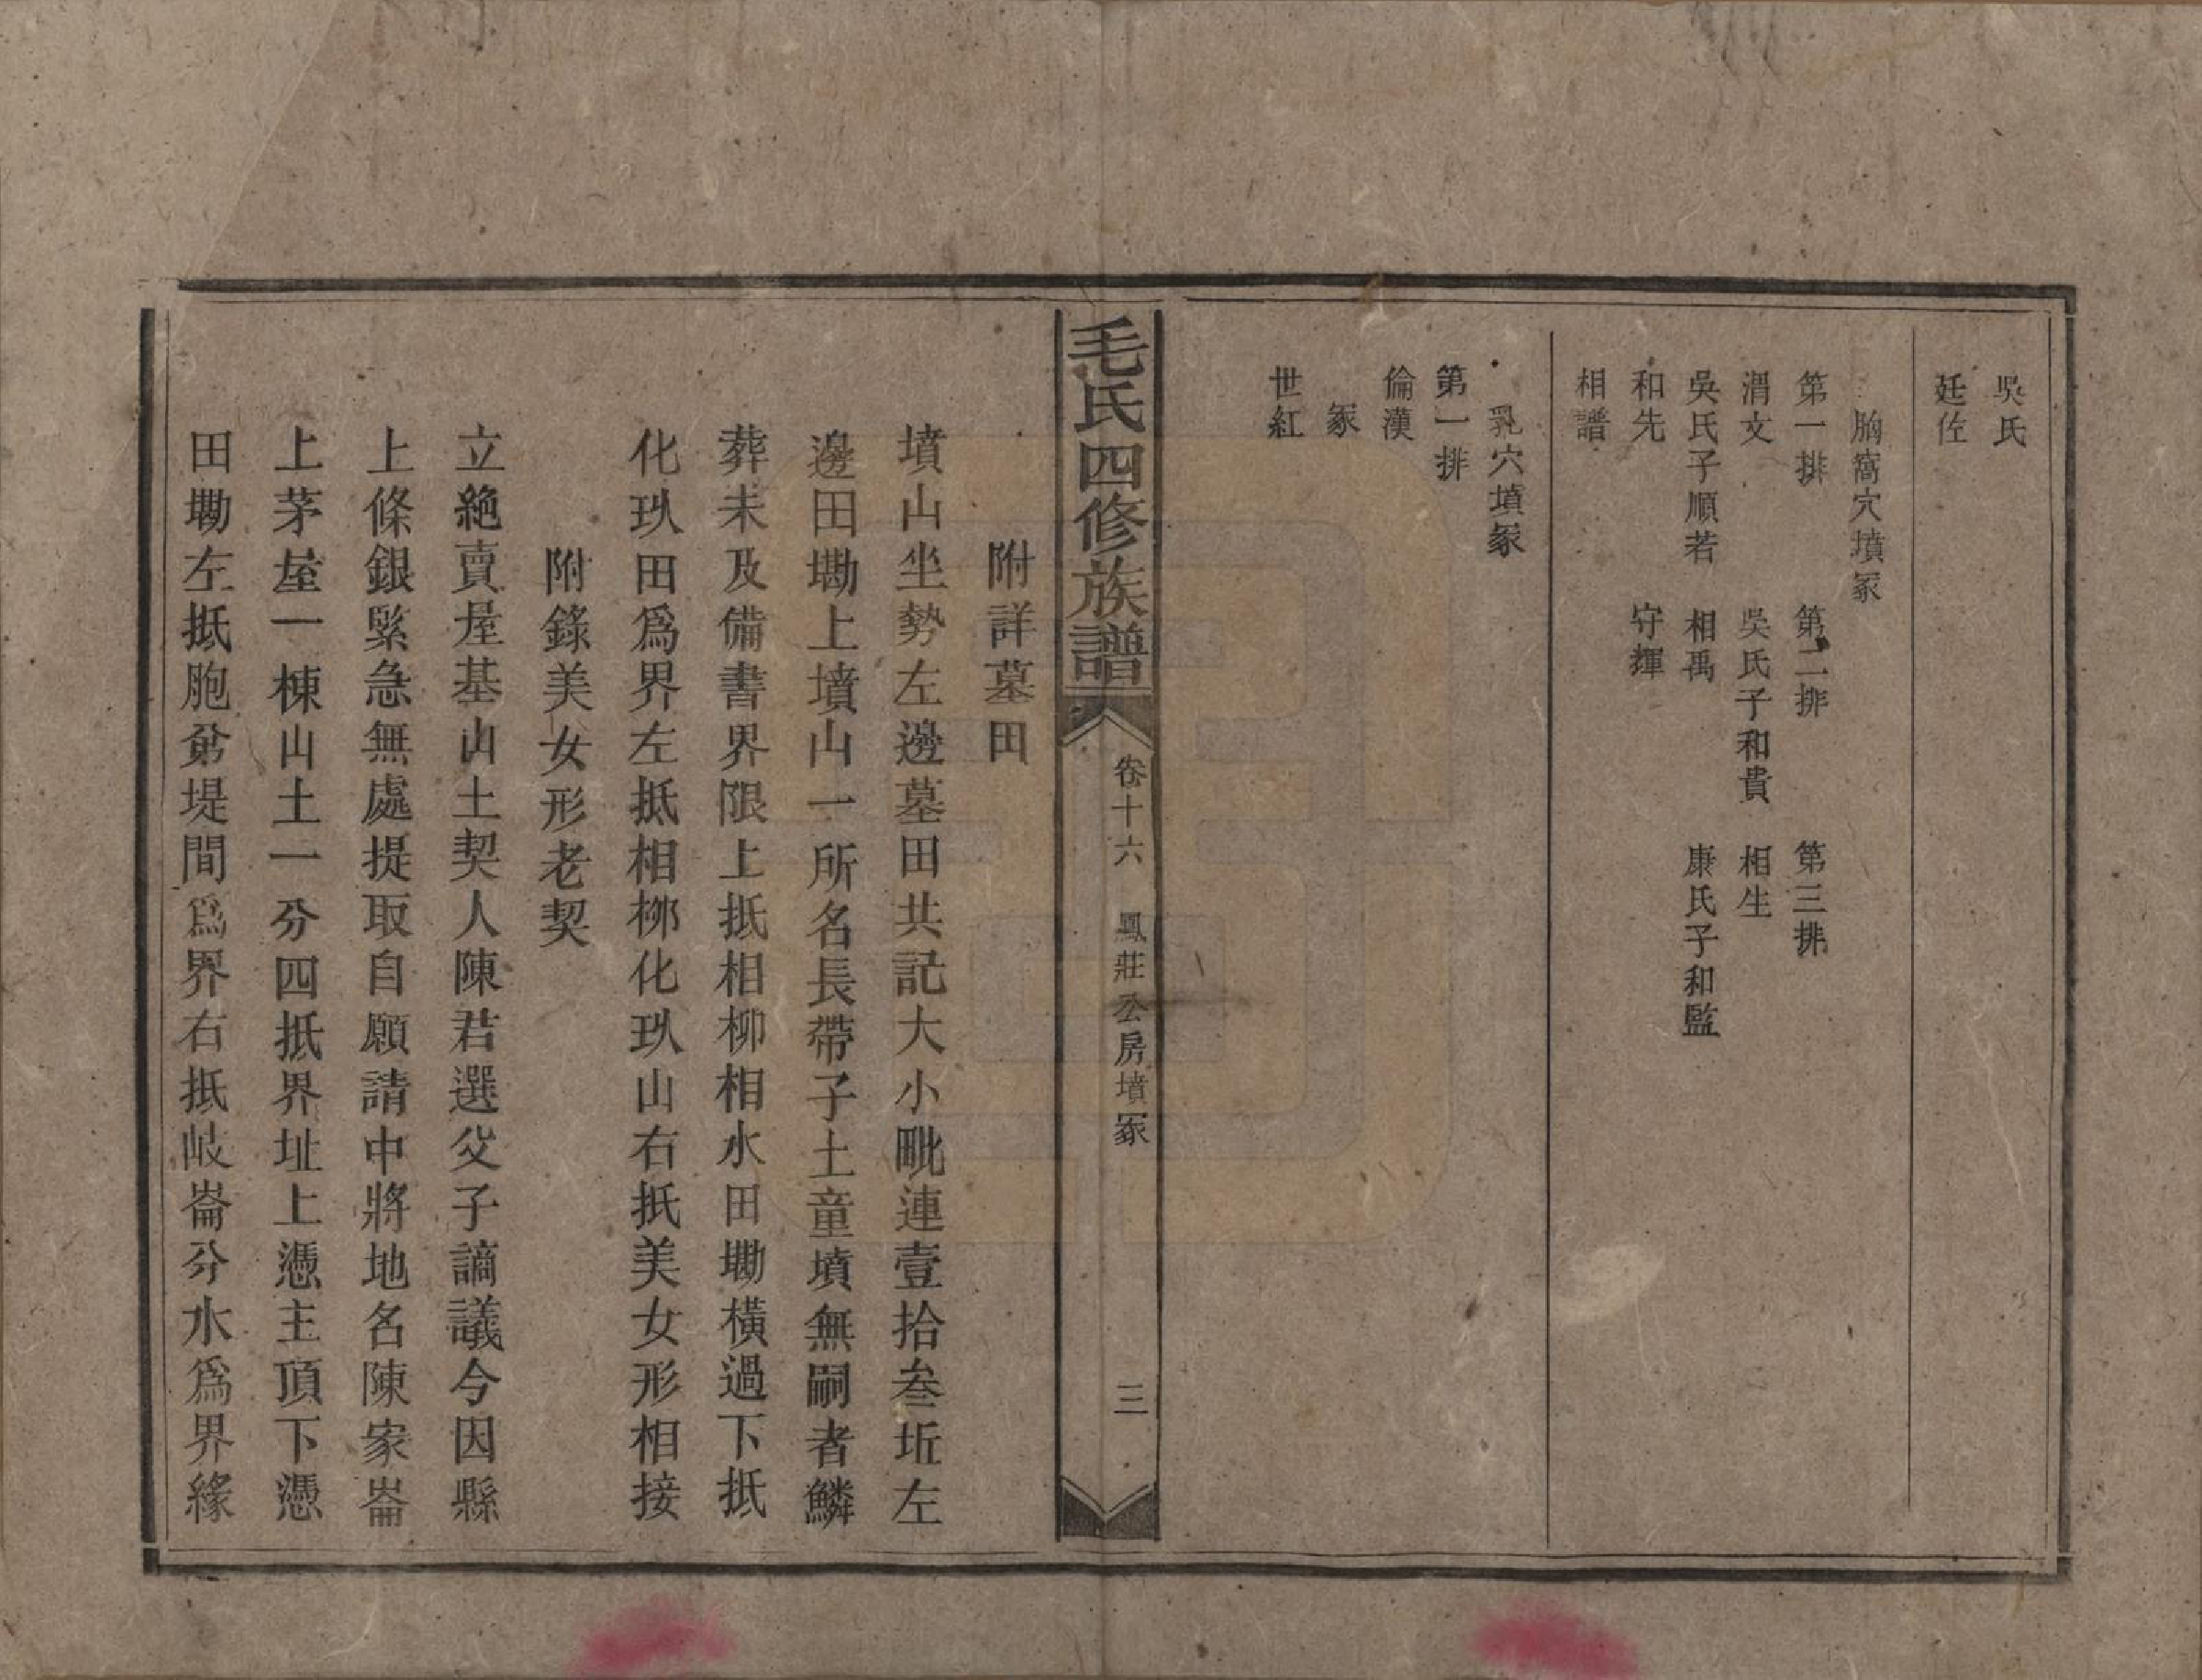 吳氏
廷佐
胸窩穴墳冢
第一排　第二排　第三排
渭文　吳氏子和貴　相生
吳氏子順若　相禹　康氏子和監
和先　守揮
相譜
乳穴墳冢
第一排
倫漢
冢
世紅
毛氏四修族譜　卷十六　鳳莊公房墳冢　三
附詳墓田
墳山坐勢左邊墓田共記大小毗連壹拾叁坵左
邊田墈上墳山一所名長帶子土童墳無嗣者鱗
葬未及備書界限上抵相柳相水田墈橫過下抵
化玖田爲界左抵相柳化玖山右抵美女形相接
附錄美女形老契
立絶賣屋基山土契人陳君選父子謫議今因縣
上條銀緊急無處提取自願請中將地名陳家崙
上茅屋一棟山土一分四抵界址上憑主頂下憑
田墈左抵胞弟堤間爲界右抵岐崙分水爲界緣